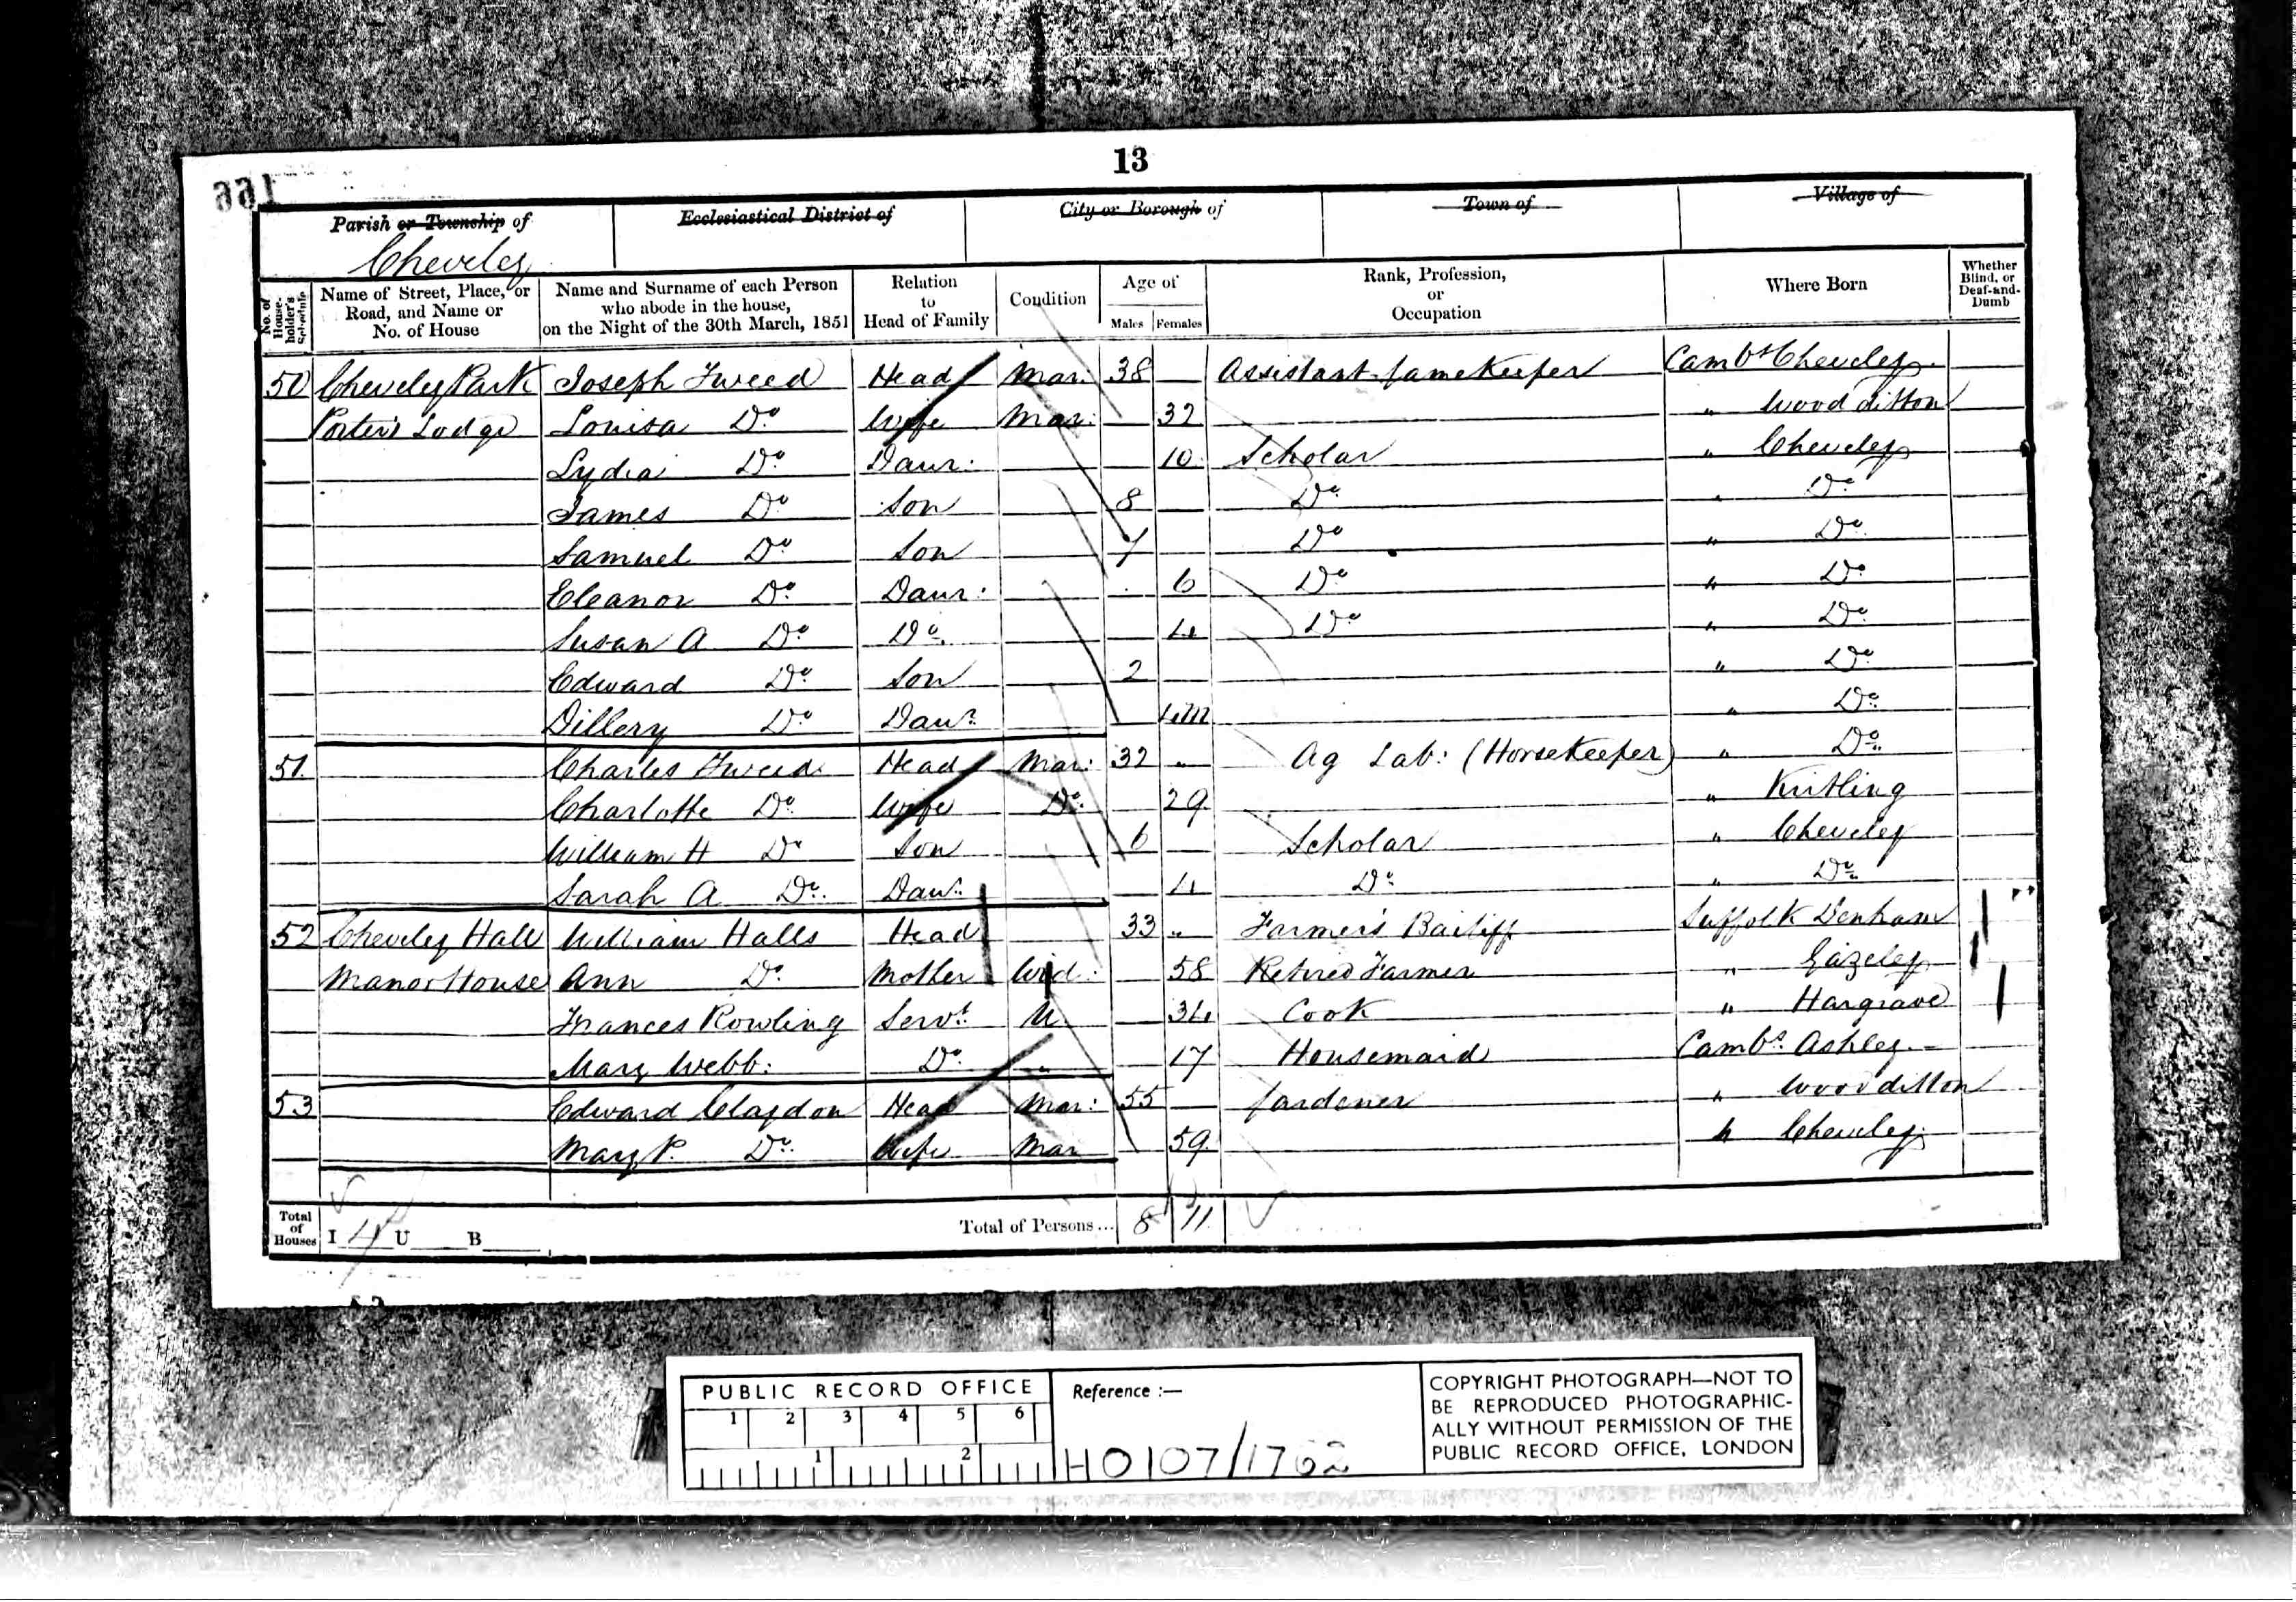 13
166
Parish or Township of
Ecclesiastical District of
City or Borough of
Town of
Village of
Cheveley
No. of House-holder's Schedule
Name of Street, Place, or Road, and Name or No. of House
Name and Surname of each Person who abode in the house, on the Night of the 30th March, 1851
Relation to Head of Family
Condition
Age of
Males Females
Rank, Profession, or Occupation
Where Born
Whether Blind, or Deaf-and-Dumb
50 Cheveley Park Joseph Tweed Head Mar: 38 Assistant Gamekeeper Cambs Cheveley
Porter's Lodge Louisa Do Wife Mar: 32 " Wood ditton
Lydia Do Daur: 10 Scholar " Cheveley
James Do Son 8 Do " Do
Samuel Do Son 7 Do " Do
Eleanor Do Daur: 6 Do " Do
Susan A Do Do 4 Do " Do
Edward Do Son 2 " Do
Dillery Do Daur 4m " Do
51 Charles Tweed Head Mar: 32 " Ag Lab: (Horsekeeper) " Do
Charlotte Do Wife Do 29 " Kirtling
William H Do Son 6 Scholar " Cheveley
Sarah A Do Daur 4 Do " Do
52 Cheveley Hall William Halls Head 33 " Farmer's Bailiff Suffolk Denham
Manor House Ann Do Mother Wid: 58 Retired Farmer " Gazeley
Frances Rowling Servt U 34 Cook " Hargrave
Mary Webb: Do " 17 Housemaid Cambs Ashley
53 Edward Claydon Head Mar: 55 Gardener " Woodditton
Mary P. Do Wife Mar 59 " Cheveley
Total of Houses I 4 U B Total of Persons... 8 11
PUBLIC RECORD OFFICE
1 2 3 4 5 6
1 2
Reference :—
HO107/1762
COPYRIGHT PHOTOGRAPH—NOT TO
BE REPRODUCED PHOTOGRAPHIC-
ALLY WITHOUT PERMISSION OF THE
PUBLIC RECORD OFFICE, LONDON